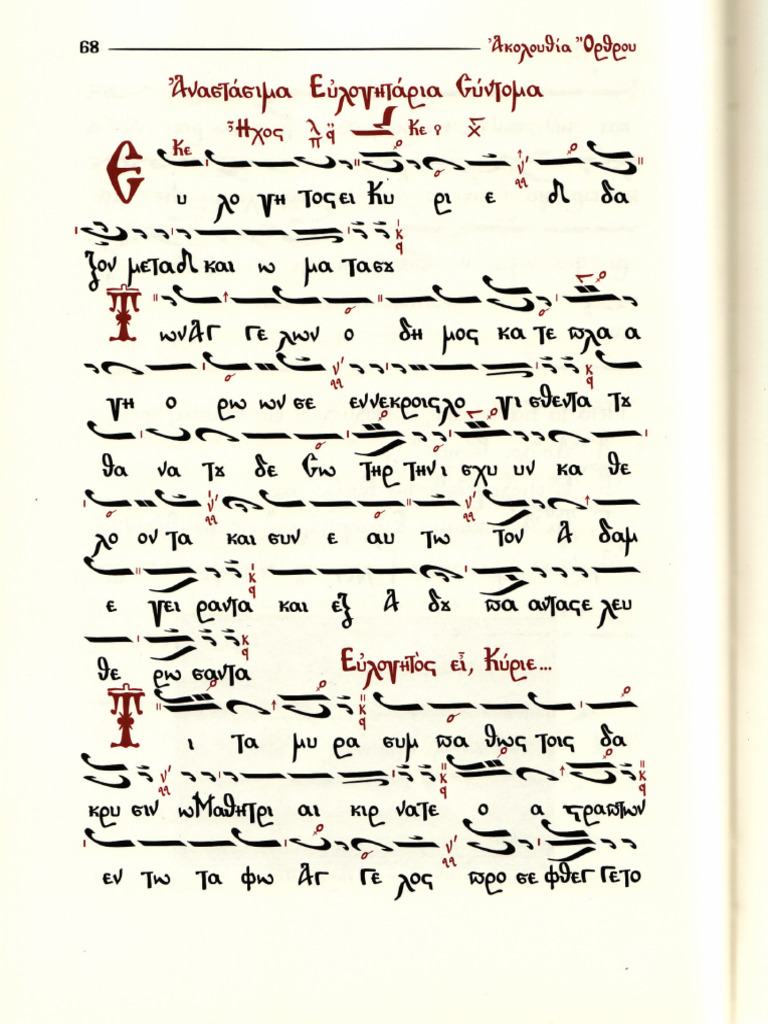 68 Ἀκολουθία Ὄρθρου
Ἀναστάσιμα Εὐλογητάρια Σύντομα
Ἦχος λ π q Κε χ
Κε
Ε υ λο γη τος ει Κυ ρι ε δι δα
ξον με τα δι και ω μα τα σου
Τ ων Αγ γε λων ο δη μος κα τε πλα α
γη ο ρω ων σε εν νε κροις λο γι σθεν τα του
θα να του δε Σω τηρ την ι σχυ υν κα θε
λο ον τα και συν ε αυ τω τον Α δαμ
ε γει ραν τα και εξ Α δου πα αν τας ε λευ
θε ρω σαν τα Εὐλογητὸς εἶ, Κύριε...
Τ ι τα μυ ρα συμ πα θως τοις δα
κρυ σιν ω Μα θη τρι αι κιρ να τε ο α στραπτων
εν τω τα φω Αγ γε λος προ σε φθεγ γε το